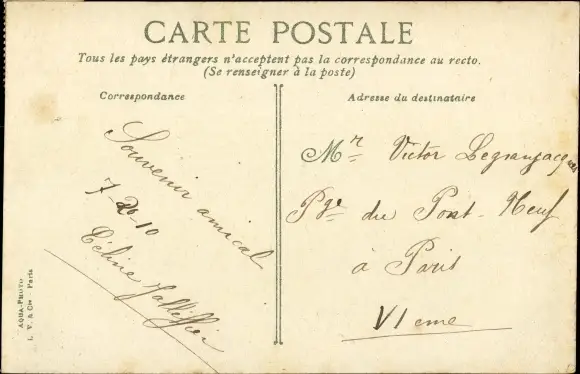 CARTE POSTALE
Tous les pays étrangers n'acceptent pas la correspondance au recto.
(Se renseigner à la poste)
Correspondance
Souvenir amical
7-26-10
Céline
Adresse du destinataire
Mr Victor Legranjacques
Pge du Pont-Neuf
à Paris
VIeme
AQUA-PHOTO
L. V. & Cie Paris